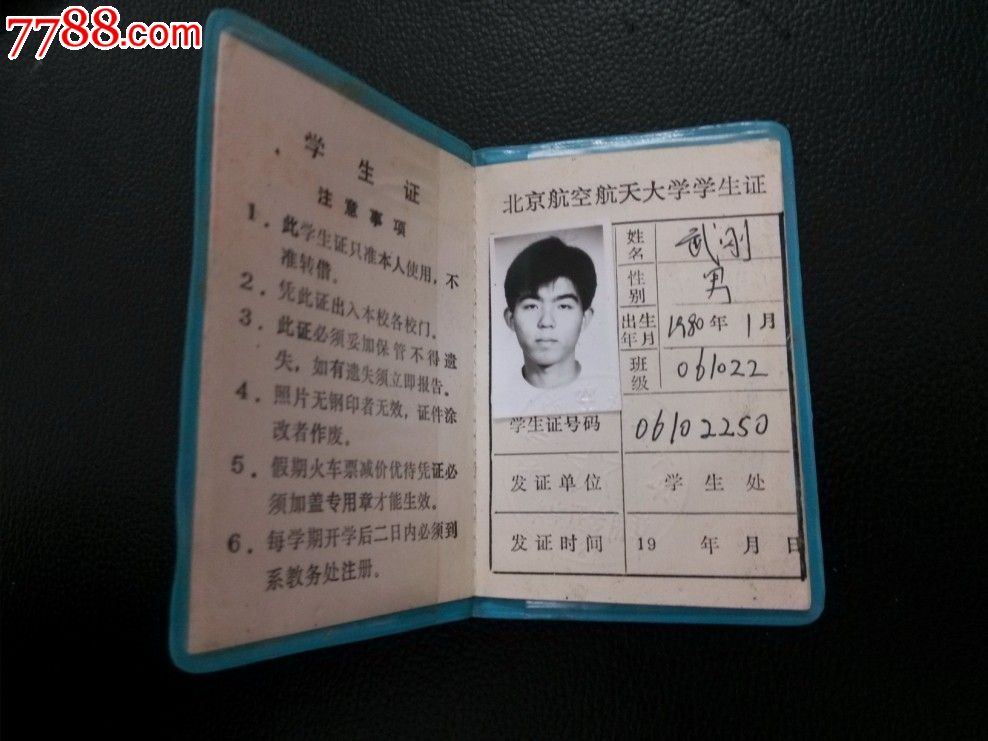 7788.com
学生证
注意事项
1．此学生证只准本人使用，不
准转借。
2．凭此证出入本校各校门。
3．此证必须妥加保管不得遗
失，如有遗失须立即报告。
4．照片无钢印者无效，证件涂
改者作废。
5．假期火车票减价优待凭证必
须加盖专用章才能生效。
6．每学期开学后二日内必须到
系教务处注册。
北京航空航天大学学生证
姓名 武刚
性别 男
出生年月 1980年1月
班级 061022
学生证号码 06102250
发证单位 学生处
发证时间 19 年 月 日